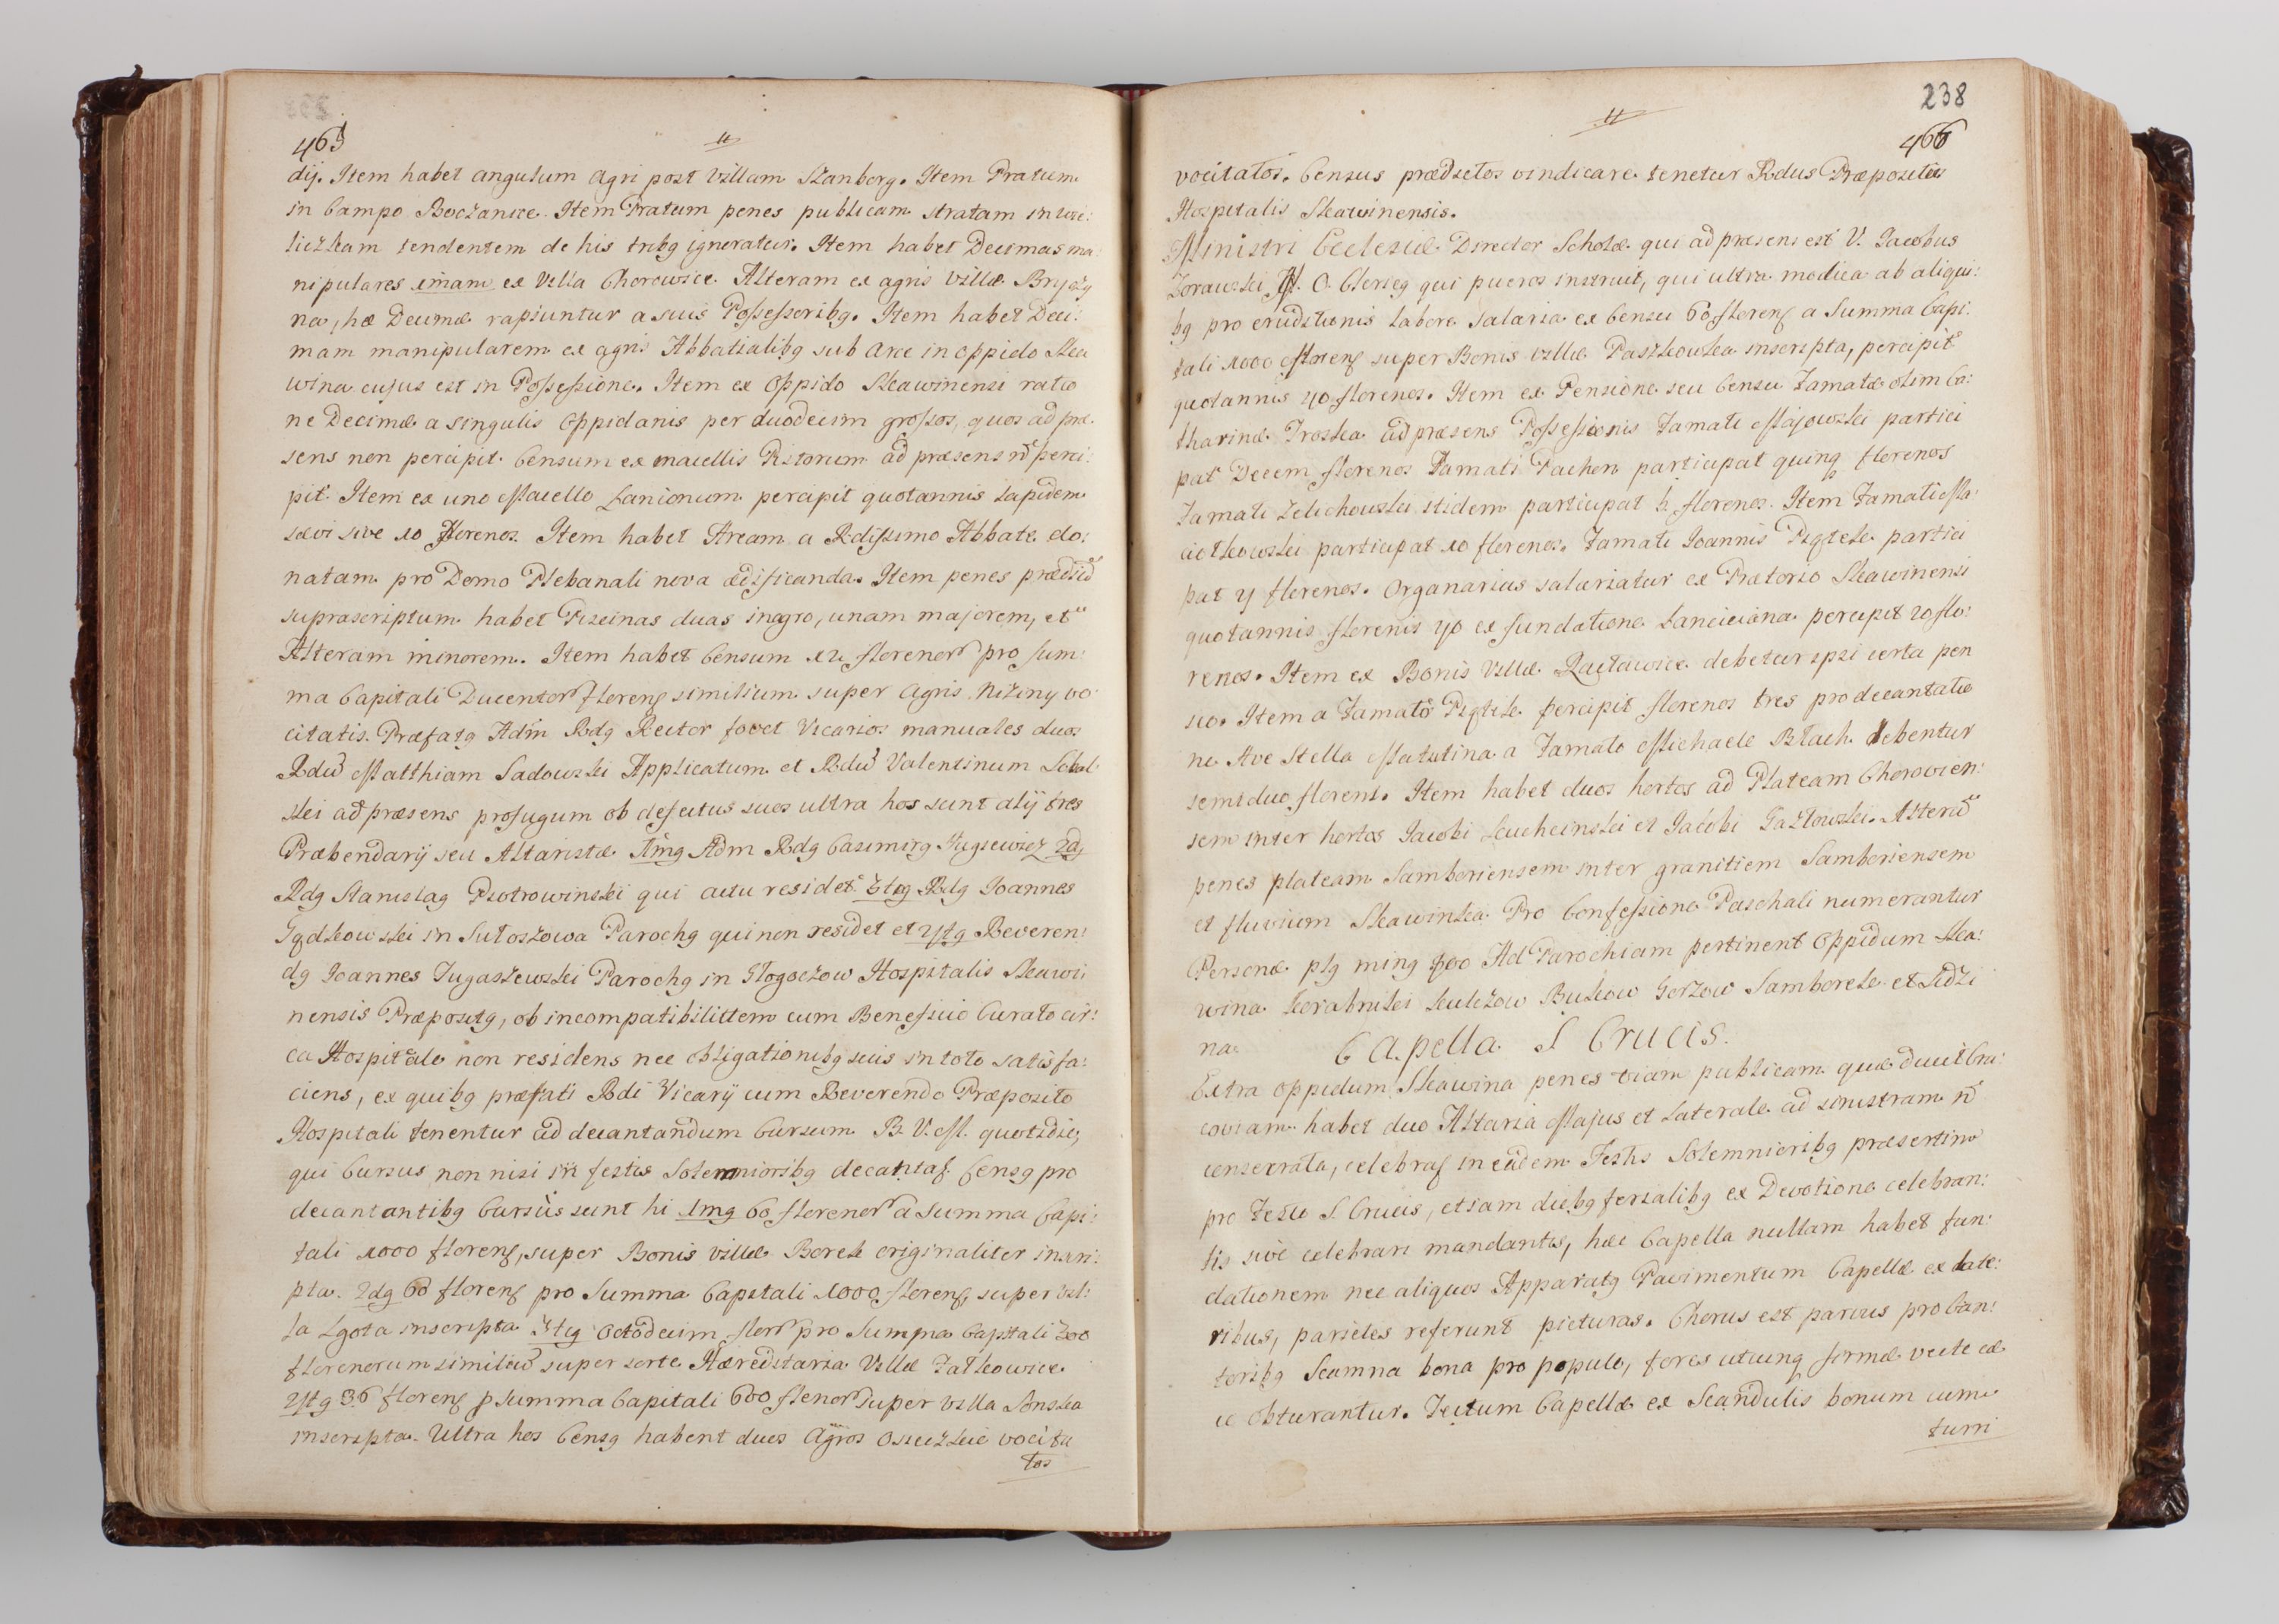 465
dij. Item habet angulum agri post Villam Skanberg. Item Pratum
in Campo Boczanice. Item Pratum penes publicam stratam in Wie:
liczkam tendentem de his tribg ignoratur. Item habet Decimas ma:
nipulares imam ex Villa Chorowice. Alteram ex agris Villæ Bryczy
na, hæ Decimæ rapiuntur a suis Possessoribg. Item habet Deci:
mam manipularem ex agris Abbatialibg sub Arce in oppido Ska
wina cujus est in Possessione. Item ex Oppido Skawinensi ratio
ne Decimæ a singulis Oppidanis per duodecim grossos, quos ad præ:
sens non percipit. Censum ex macellis Pistorum ad præsens n̄ perci:
pit. Item ex uno Macello Lanionum percipit quotannis lapidem
sævi sive 10 florenos. Item habet Aream a Rdissimo Abbate do:
natam pro Domo Plebanali nova ædificanda. Item penes prædiū
suprascriptum habet Piscinas duas in agro, unam majorem, et
Alteram minorem. Item habet Censum 12 florenor pro sum:
ma Capitali Ducentor floreng similium super Agris Niziny vo
citatis. Præfatg Adm Rdg Rector fovet Vicarios manuales duos
Rdū Matthiam Sadowski Applicatum et Rdū Valentinum
ski ad præsens profugum ob defectus suos ultra hos sunt alij tres
Præbendarij seu Altaristæ 1mg Adm Rdg Casimirg 2dg
Rdg Stanislag Piotrowinski qui actu residet 3tig Rdg Joannes
Gądkowski in Sułoszowa Parochg qui non residet et 4tg Reveren:
dg Joannes Jugaszewski Parochg in Głogoczow Hospitalis Skawi:
nensis Præpositg, ob incompatibilittem cum Beneficio Curato cir:
ca Hospitale non residens nec obligationibg suis in toto satisfa:
ciens, ex quibg præfati Rdi Vicarij cum Reverendo Præposito
Hospitali tenentur ad decantandum Cursum B. V. M. quotidie,
qui Cursus non nisi in festis Solemnioribg decantaf. Censg pro
decantantibg Cursus sunt hi 1mg 60 florenor a Summa Capi:
tali 1000 floreng, super Bonis villæ Borek originaliter inscri:
pta. 2dg 60 floreng pro Summa Capitali 1000 floreng super Vil:
la Lgota inscripta 3tig Octodecim flor pro Summa Capitali 300
florenorum similiū super sorte Hæreditaria Villæ Zatkowice.
4tg 36 floreng p Summa Capitali 600 florenor super Villa Konska
inscripta. Ultra hos Censg habent duos Agros Osieczkie vocita
tos
238
466
vocitatos. Census prædictos vindicare tenetur Rdus Præpositus
Hospitalis Skawinensis.
Ministri Ecclesiæ Director Scholæ qui ad præsens est V. Jacobus
Zorawski M. O. Clericg qui pueros instruit, qui ultra modica ab aliqui:
bg pro eruditionis labore salaria ex Censu 60 floreng a Summa Capi:
tali 1000 floreng super Bonis villæ Paszkowka inscripta, percipit
quotannis 40 florenos. Item ex Pensione seu Censu Famatæ olim Ca:
tharinæ Troska ad præsens Possessionis Famati Majowski partici
pat Decem florenos Famati Pachen participat quinq florenos
Famati Zelichowski itidem participat 5 florenos. Item Famati Ma:
ciotkowski participat 10 florenos. Famati Joannis Piątek partici
pat 4 florenos. Organarius salariatur ex Prætorio Skawinensi
quotannis florenis 40 ex fundatione Lanciciana percipit 20 flo:
renos. Item ex Bonis Villæ Racławice debetur ipsi certa pen
sio. Item a Famato Piątek percipit florenos tres pro decantatio
ne Ave Stella Matutina a Famato Michaele Błach debentur
semiduo floreni. Item habet duos hortos ad Plateam Chorovien:
sem inter hortos Jacobi Leucheinski et Jacobi Pazłowski. Alterū
penes plateam Samboriensem inter granitiem Samboriensem
et fluvium Skawinka. Pro Confessione Paschali numerantur
Personæ plg ming 700 Ad Parochiam pertinent Oppidum Ska:
wina Korabniki Kulczow Bukow Gorzow Samborek et Sidzi
na. Capella S Crucis.
Extra oppidum Skawina penes viam publicam quæ ducit Cra:
coviam habet duo Altaria Majus et Laterale ad sinistram n̄
consecrata, celebraf in eadem Festis Solemnioribg præsertim
pro Festo S. Crucis, etiam diebg ferialibg ex Devotione celebran:
tis sive celebrari mandantis, hæc Capella nullam habet fun:
dationem nec aliquos Apparatg Pavimentum Capellæ ex late:
ribus, parietes referunt picturas. Chorus est parvus pro Can:
toribg Scamna bona pro populo, fores utcunq firmæ vecte eæ
ce obturantur. Tectum Capellæ ex Scandulis bonum cum
turri